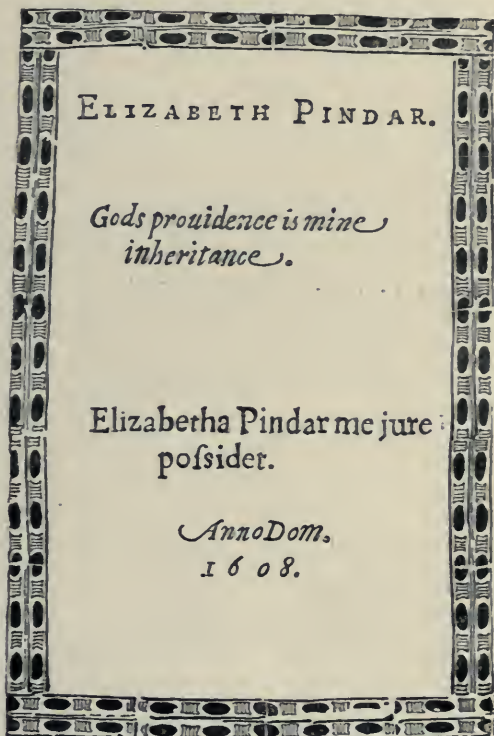 ELIZABETH PINDAR.
Gods prouidence is mine
inheritance.
Elizabetha Pindar me jure
poſsidet.
Anno Dom.
1608.